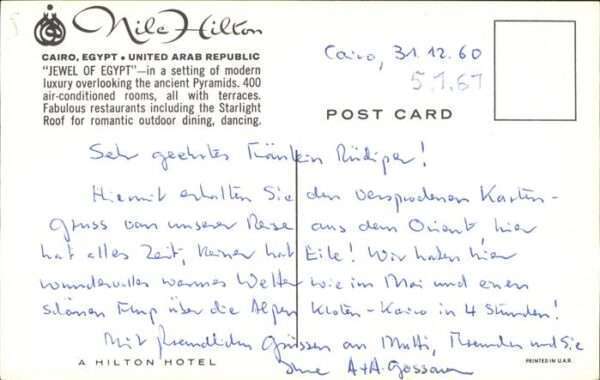 Nile Hilton
CAIRO, EGYPT • UNITED ARAB REPUBLIC
"JEWEL OF EGYPT"—in a setting of modern
luxury overlooking the ancient Pyramids. 400
air-conditioned rooms, all with terraces.
Fabulous restaurants including the Starlight
Roof for romantic outdoor dining, dancing.
Cairo, 31.12.60
5.1.61
POST CARD
Sehr geehrtes Fräulein Rüdiger!
Hiermit erhalten Sie den versprochenen Karten-
gruss von unserer Reise aus dem Orient, hier
hat alles Zeit, keiner hat Eile! Wir haben hier
wundervolles warmes Wetter wie im Mai und einen
schönen Flug über die Alpen Kloten-Kairo in 4 Stunden!
Mit freundlichen Grüssen an Mutti, Freunden und Sie
Ihre A+A. Gossau
A HILTON HOTEL
PRINTED IN U.A.R